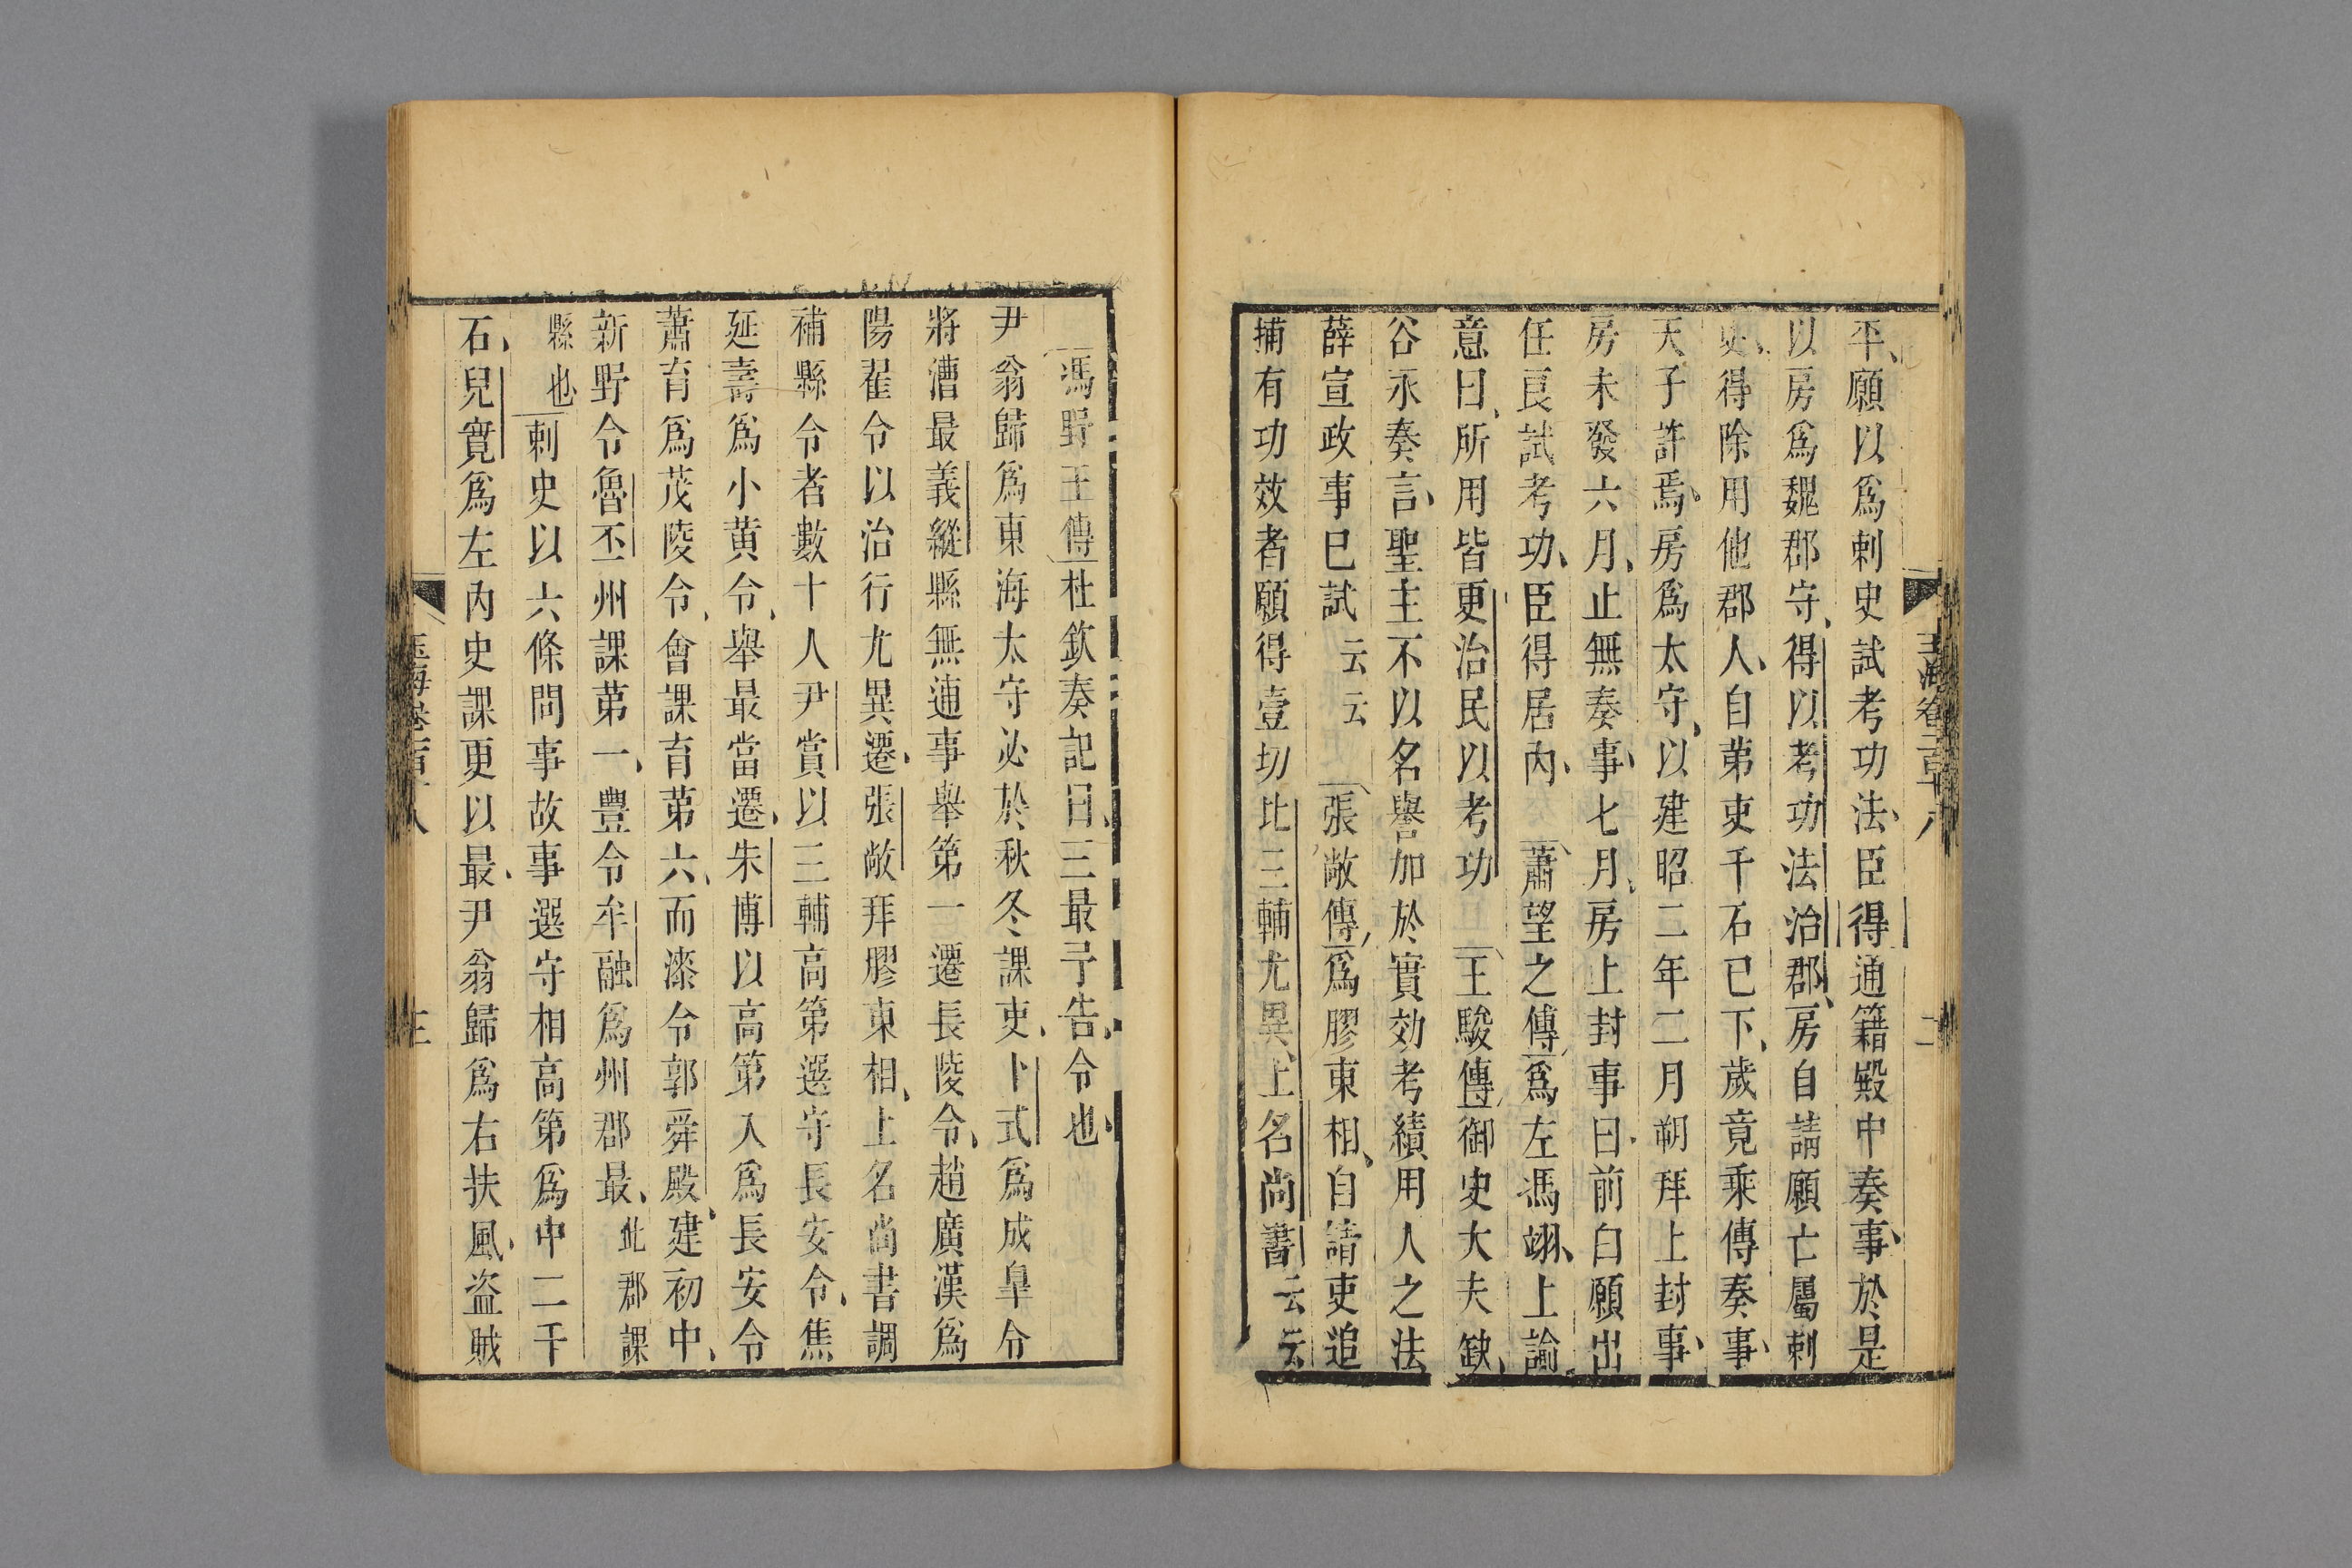 平願以為刺史試考功法臣得通籍殿中奏事於是
以房為魏郡守得以考功法治郡房自請願亡屬刺
史得除用他郡人自第吏千石已下歲竟乘傳奏事
天子許焉房為太守以建昭二年二月朔拜上封事
房未發六月止無奏事七月房上封事曰前白願出
任良試考功臣得居內 蕭望之傳為左馮翊上諭
意曰所用皆更治民以考功 王駿傳御史大夫缺
谷永奏言聖主不以名譽加於實効考績用人之法
薛宣政事已試云云 張敞傳為膠東相自請吏追
捕有功效者願得壹切比三輔尤異上名尚書云云
馮野王傳杜欽奏記曰三最予告令也
尹翁歸為東海太守必於秋冬課吏卜式為成皐令
將漕最義縱縣無逋事舉第一遷長陵令趙廣漢為
陽翟令以治行尤異遷張敞拜膠東相上名尚書調
補縣令者數十人尹賞以三輔高第選守長安令焦
延壽為小黃令舉最當遷朱博以高第入為長安令
蕭育為茂陵令會課育第六而漆令郭舜殿建初中
新野令魯丕州課第一豐令牟融為州郡最此郡課
縣也刺史以六條問事故事選守相高第為中二千
石兒寬為左內史課更以最尹翁歸為右扶風盜賊